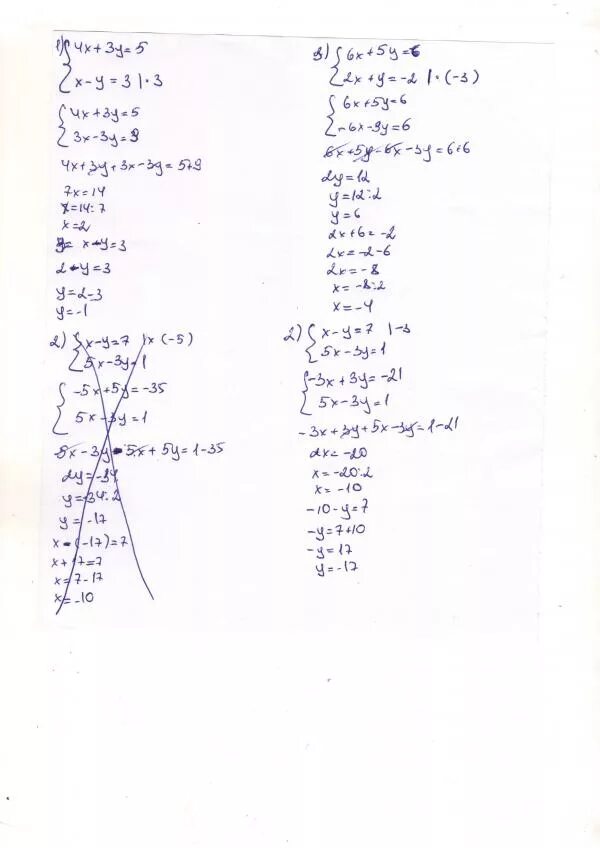 1) { 4x+3y=5
x-y=3 |·3
{ 4x+3y=5
3x-3y=9
4x+3y+3x-3y=5+9
7x=14
x=14:7
x=2
x-y=3
2-y=3
y=2-3
y=-1
2) { x-y=7 |x(-5)
5x-3y=1
{ -5x+5y=-35
5x-3y=1
5x-3y-5x+5y=1-35
2y=-34
y=-34:2
y=-17
x-(-17)=7
x+17=7
x=7-17
x=-10
3) { 6x+5y=6
2x+y=-2 |·(-3)
{ 6x+5y=6
-6x-3y=6
6x+5y-6x-3y=6+6
2y=12
y=12:2
y=6
2x+6=-2
2x=-2-6
2x=-8
x=-8:2
x=-4
2) { x-y=7 |-3
5x-3y=1
{ -3x+3y=-21
5x-3y=1
-3x+3y+5x-3y=1-21
2x=-20
x=-20:2
x=-10
-10-y=7
-y=7+10
-y=17
y=-17